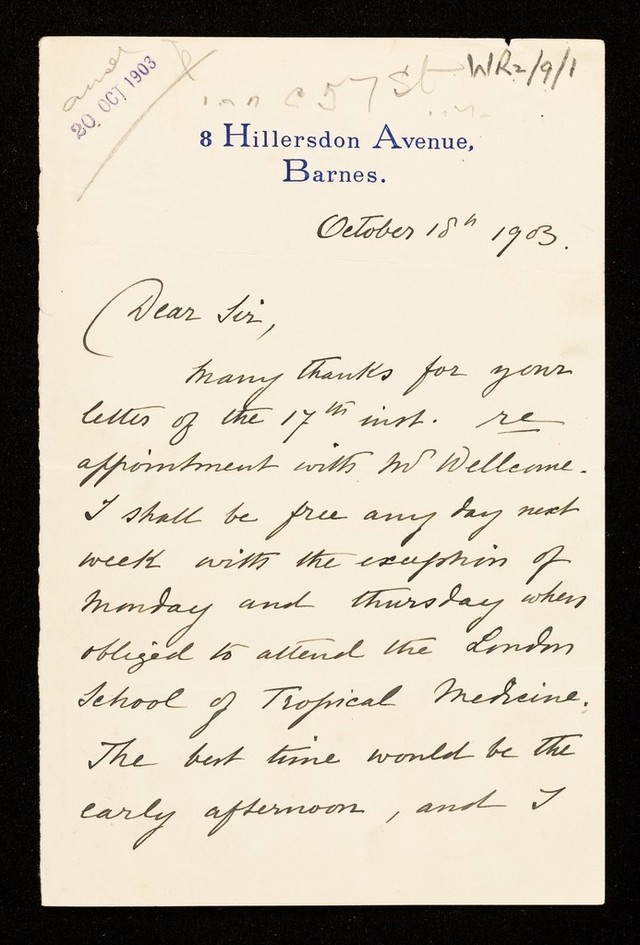 ansd
20 OCT 1903
WR2/9/1
8 Hillersdon Avenue,
Barnes.
October 18th 1903.
Dear Sir,
Many thanks for your
letter of the 17th inst. re
appointment with Mr Wellcome.
I shall be free any day next
week with the exception of
Monday and Thursday when
obliged to attend the London
School of Tropical Medicine.
The best time would be the
early afternoon, and I